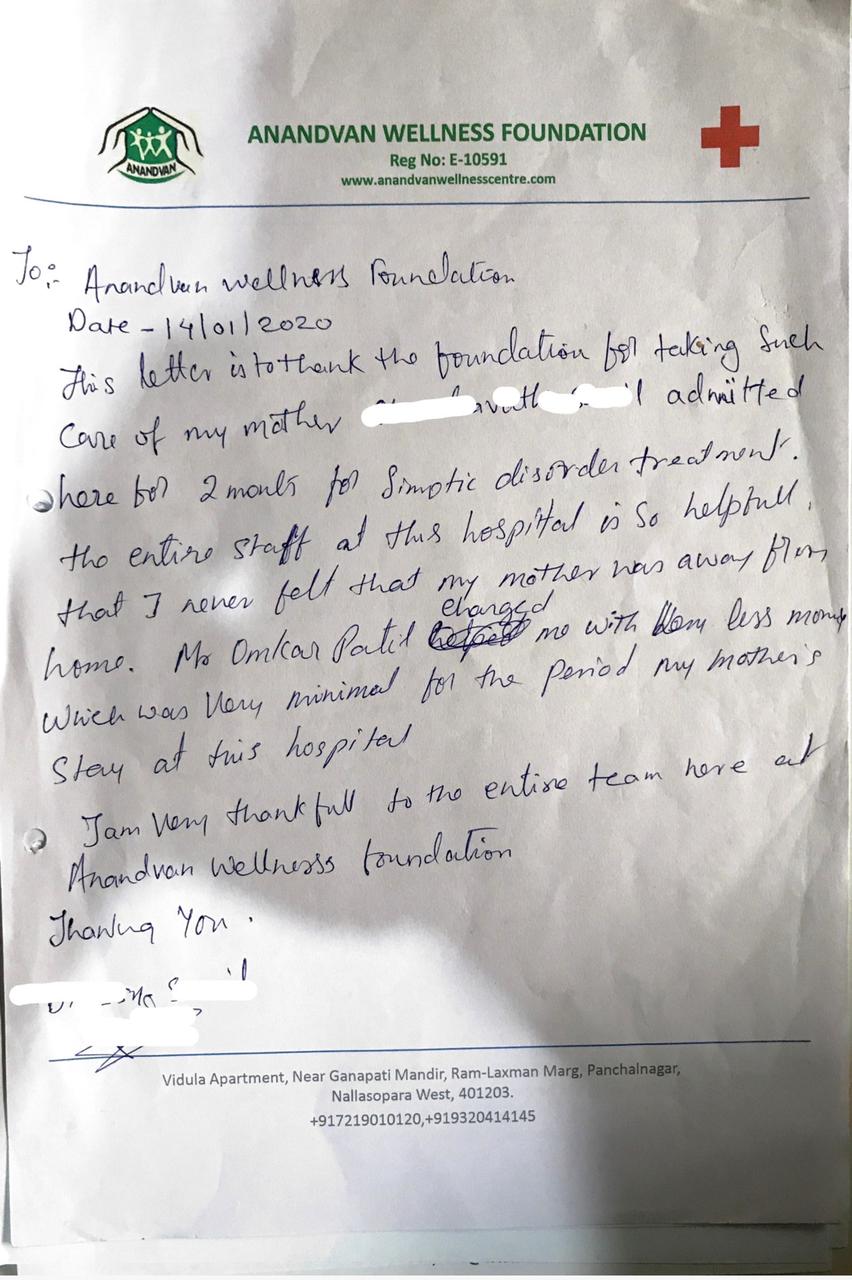 ANANDVAN
ANANDVAN WELLNESS FOUNDATION
Reg No: E-10591
www.anandvanwellnesscentre.com
To:- Anandvan wellness foundation
Date - 14/01/2020
This letter is to thank the foundation for taking such
care of my mother admitted
here for 2 months for Simptic disorder treatment.
the entire staff at this hospital is so helpfull,
that I never felt that my mother was away from
home. Mr Omkar Patil charged me with very less money
which was very minimal for the period my mother's
stay at this hospital
I am very thankfull to the entire team here at
Anandvan wellness foundation
Thanking You.
Vidula Apartment, Near Ganapati Mandir, Ram-Laxman Marg, Panchalnagar,
Nallasopara West, 401203.
+917219010120,+919320414145